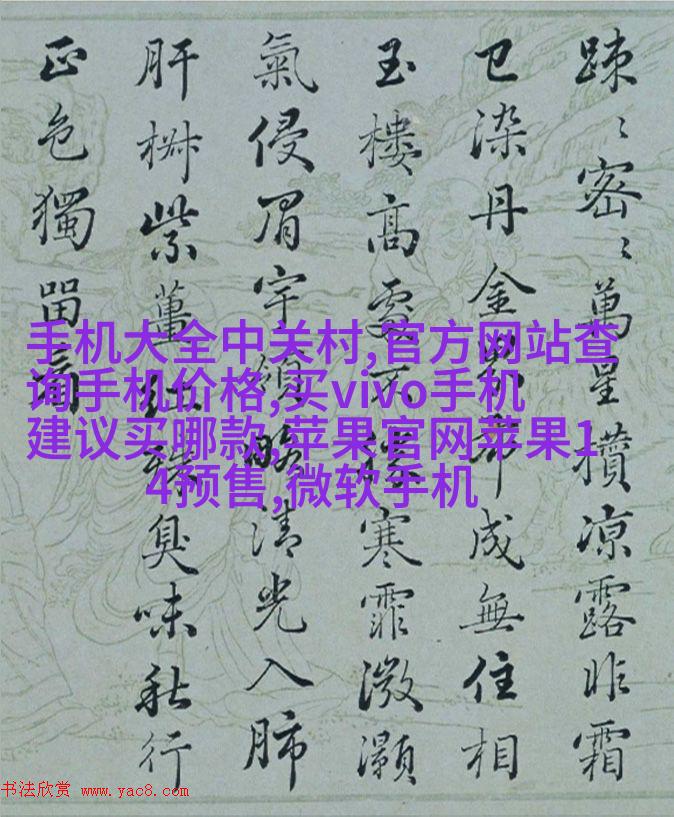 踈〻密〻萬星攢凉露昨霜
已染丹金布成無住相
玉樓高處不寒霏溦灝
氣侵眉宇清光入肺
肝樹紫紅殊臭味秋行
正色獨留
手机大全中关村,官方网站查
询手机价格,买vivo手机
建议买哪款,苹果官网苹果1
4预售,微软手机
书法欣赏 www.yac8.com